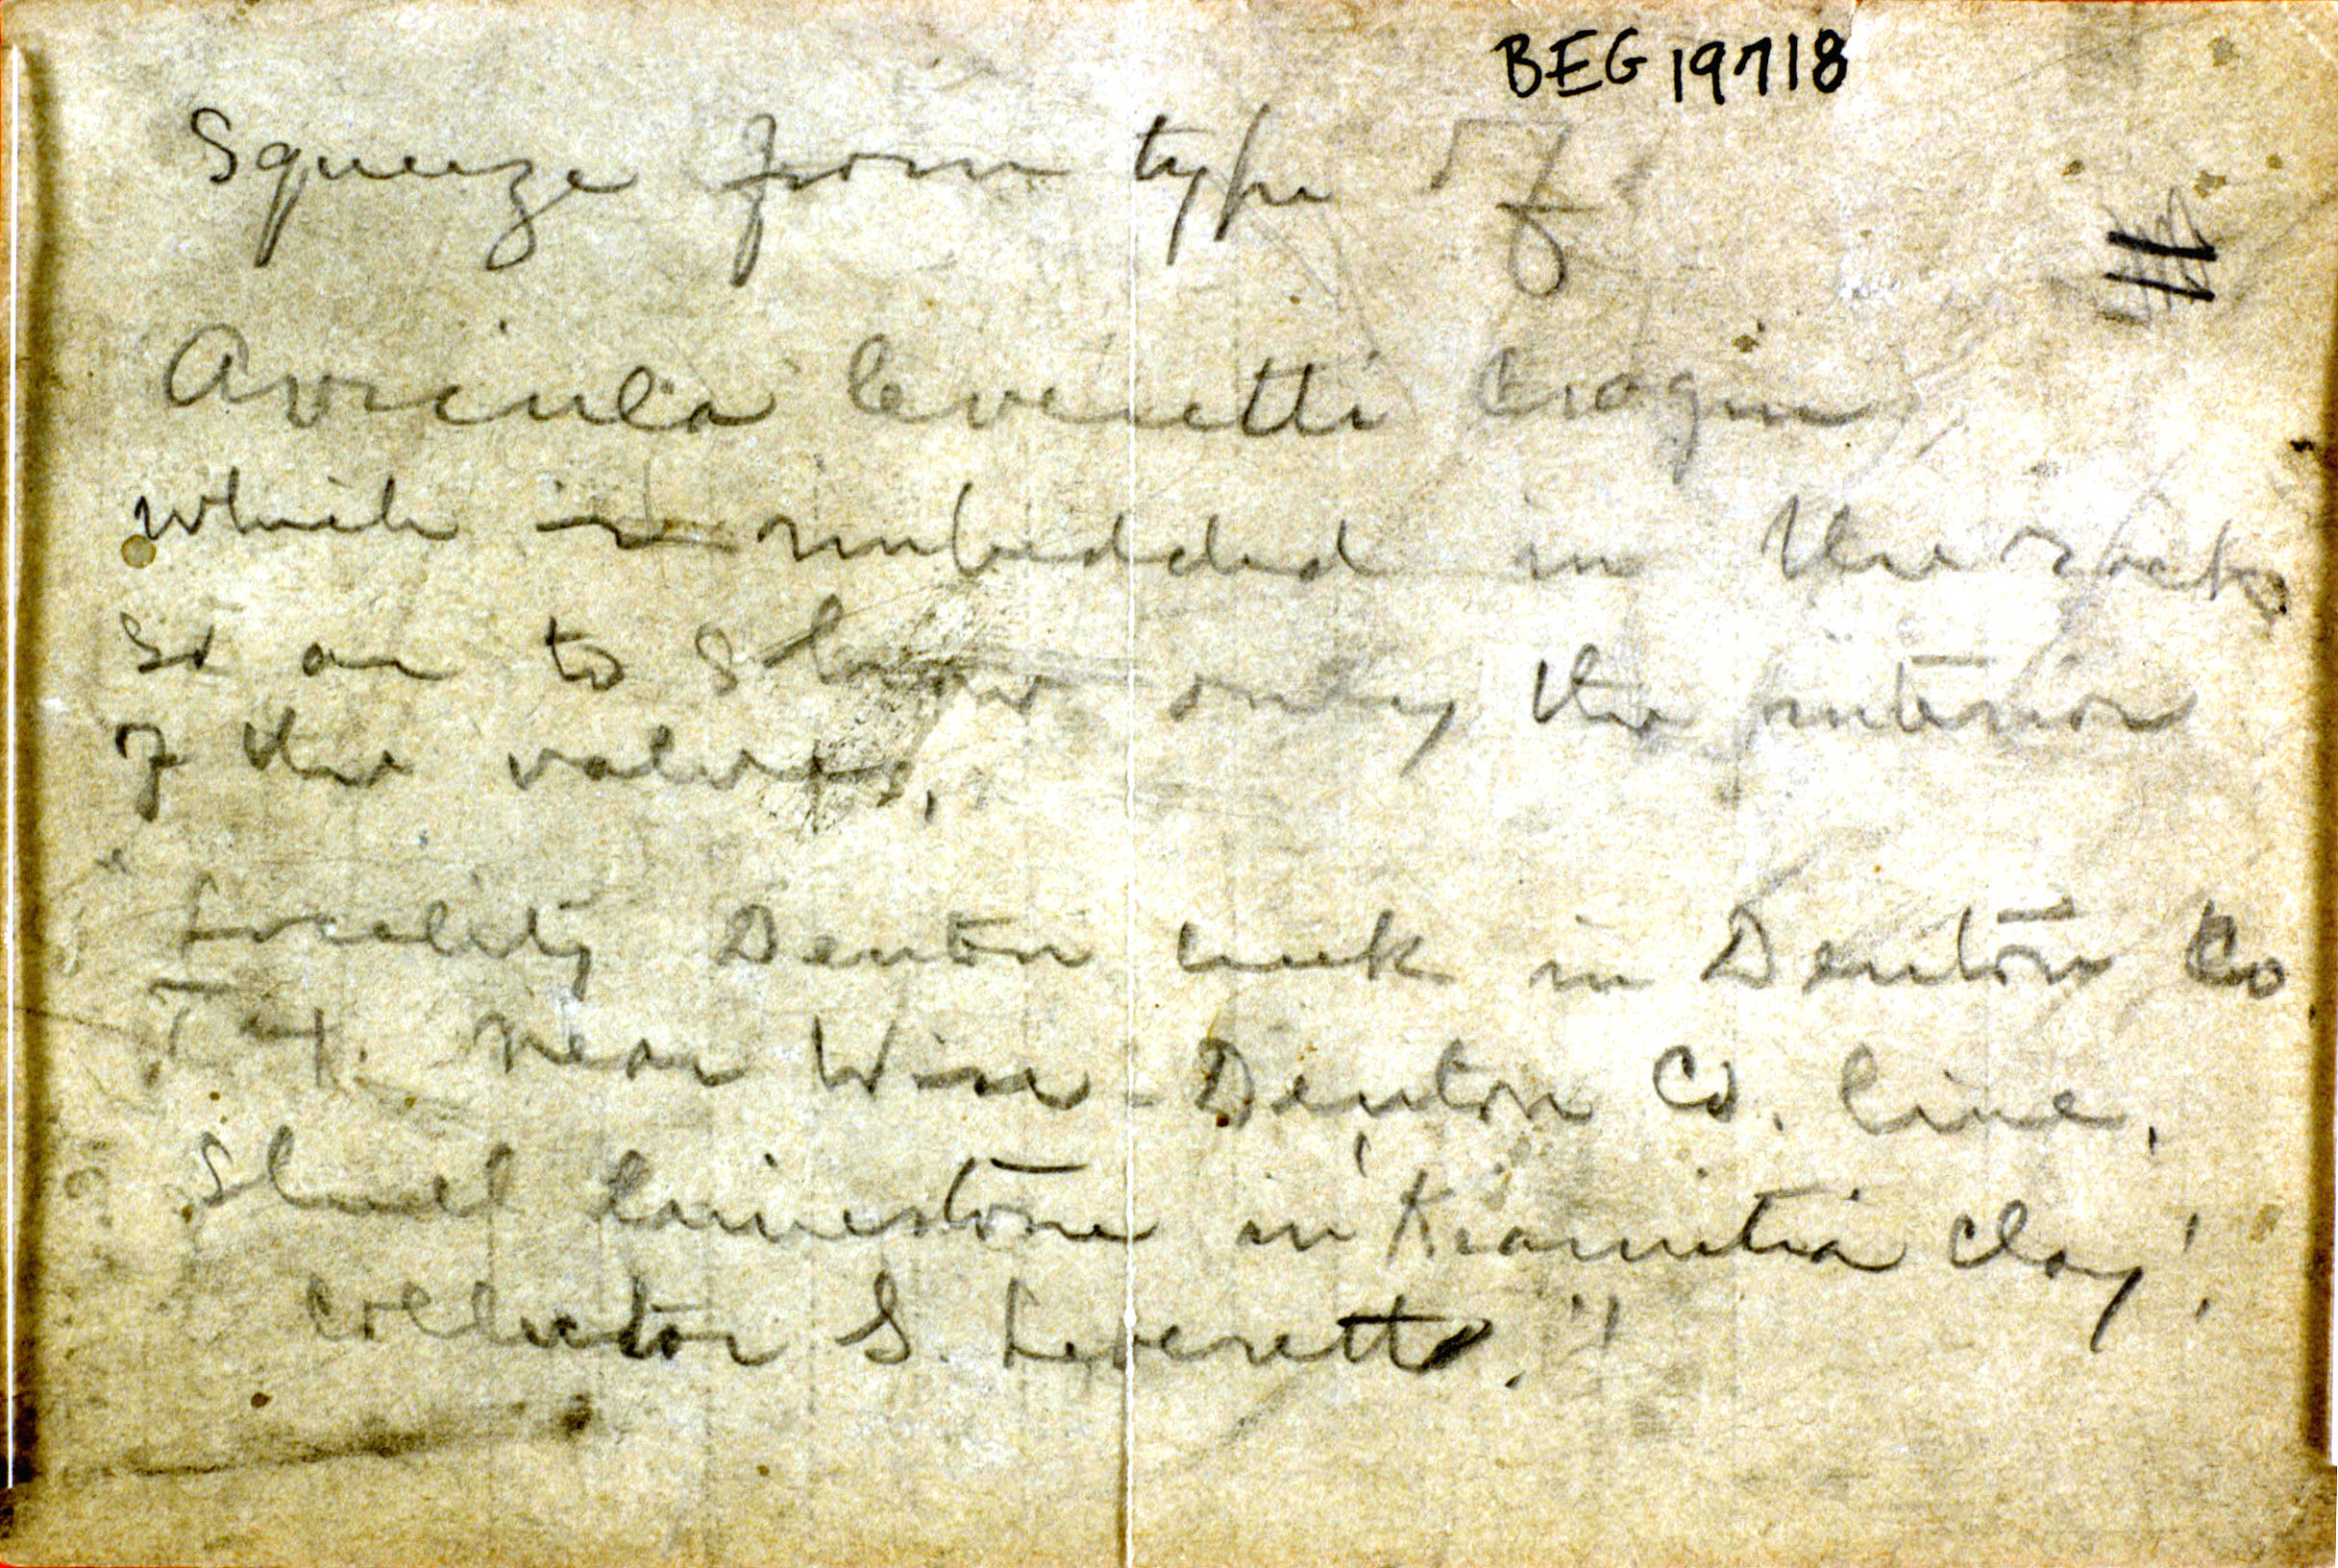 BEG 19718
Squeeze from type of
Avicula leveretti Cragin
which is imbedded in the rock
so as to show only the interior
of the valves.
"Locality Denton creek in Denton Co
Tex. near Wise-Denton Co. line,
Shell limestone in 'Kiamitia clay'.
Collector S. Leverett."